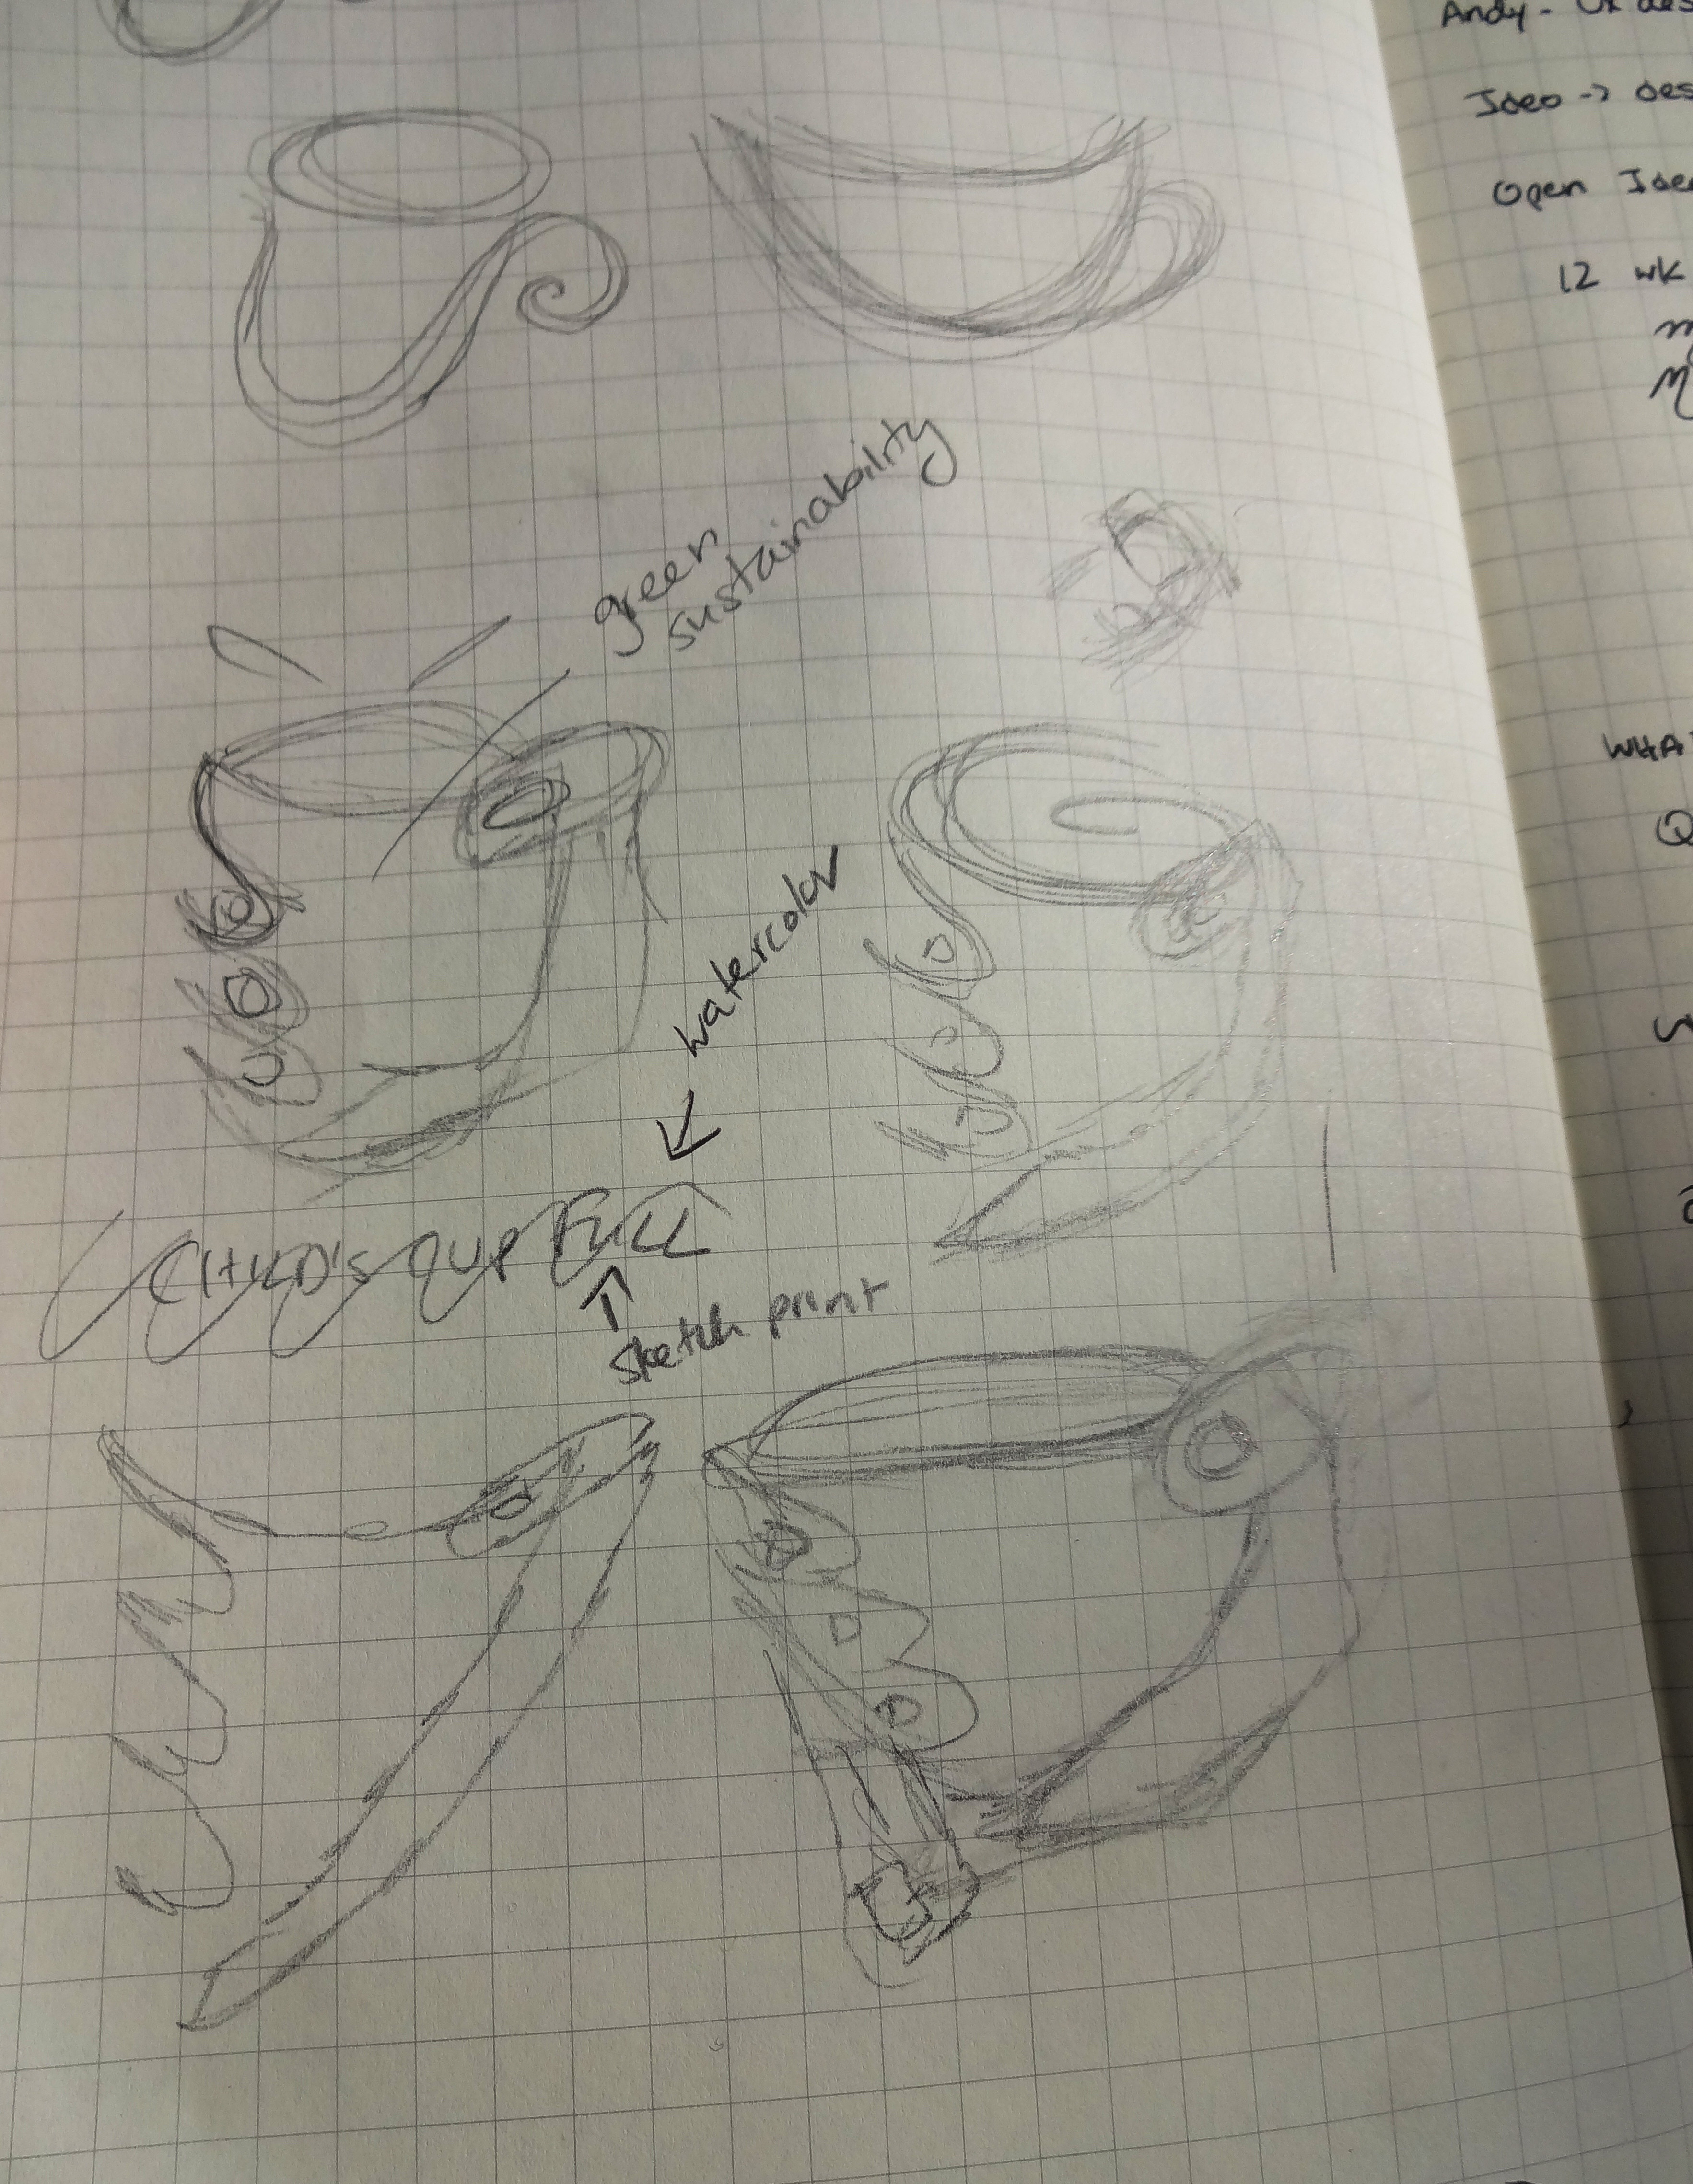 green
sustainability
watercolor
CHILD's CUP FULL
sketch print
Andy - UX des
Ideo -> des
Open Ideo
12 wk
WHA
Q